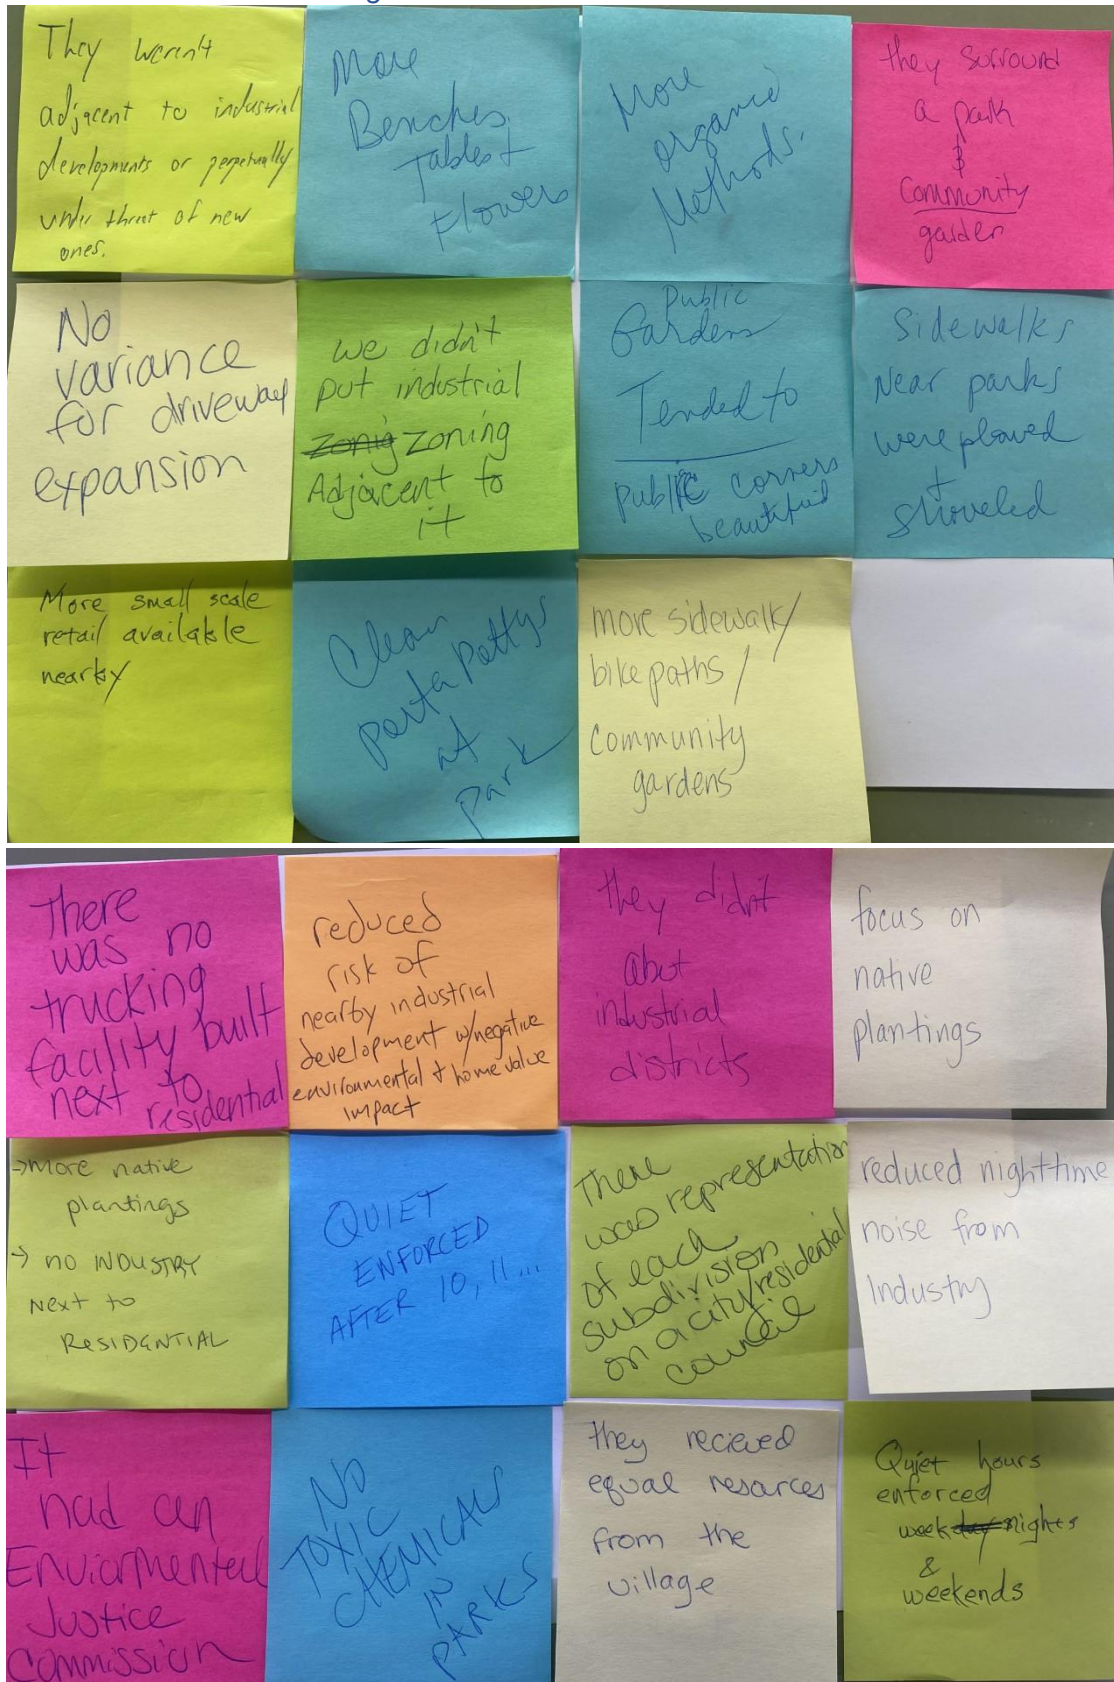 They weren't
adjacent to industrial
developments or perpetually
under threat of new
ones.
More
Benches,
Tables +
Flowers
More
organic
Methods.
they surround
a park
&
community
garden
No
variance
for driveway
expansion
we didn't
put industrial
zonig zoning
Adjacent to
it
Public
Gardens
Tended to
public corners
beautified
Sidewalks
Near parks
were plowed
+
shoveled
More small scale
retail available
nearby
Clean
porta pottys
at
park
more sidewalk/
bike paths/
community
gardens
There
was no
trucking
facility built
next to
residential
reduced
risk of
nearby industrial
development w/negative
environmental + home value
impact
they didn't
abut
industrial
districts
focus on
native
plantings
→ more native
plantings
→ no INDUSTRY
Next to
RESIDENTIAL
QUIET
ENFORCED
AFTER 10, 11...
There
was representation
of each
subdivision
on a city/residential
council
reduced nighttime
noise from
Industry
It
had an
Enviormental
Justice
Commission
NO
TOXIC
CHEMICALS
IN
PARKS
they recieved
equal resources
from the
village
Quiet hours
enforced
weekday nights
&
weekends